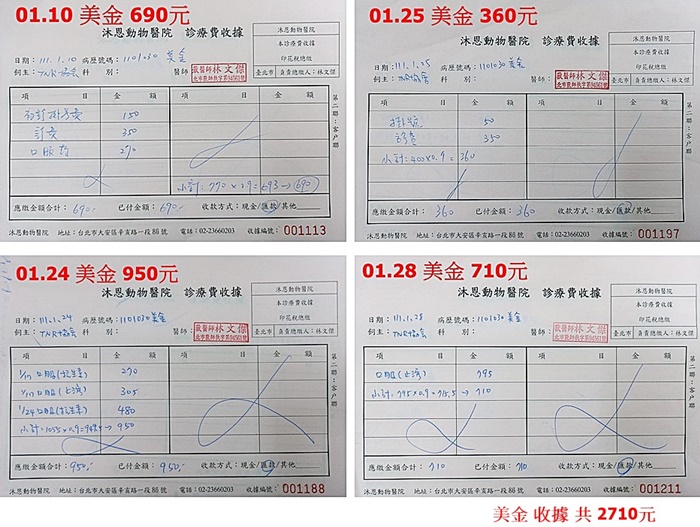 01.10 美金 690元
沐恩動物醫院 診療費收據
沐恩動物醫院
本診療費收據
印花稅總繳
臺北市 負責總繳人:林文傑
日期:111.1.10 病歷號碼:1101030 美金
飼主:TNR協會 科 別: 醫師:獸醫師林文傑
項 目 金 額 項 目 金 額
初診掛號費 150
診費 350
口服藥 270
小計:770×0.9=693→690
應繳金額合計:690.- 已付金額:690.- 收款方式:現金/匯款/其他
沐恩動物醫院 地址:台北市大安區辛亥路一段86號 電話:02-23660203 收據編號:001113
第二聯:客戶聯
01.25 美金 360元
沐恩動物醫院 診療費收據
沐恩動物醫院
本診療費收據
印花稅總繳
臺北市 負責總繳人:林文傑
日期:111.1.25 病歷號碼:1101030 美金
飼主:TNR協會 科 別: 醫師:獸醫師林文傑
項 目 金 額 項 目 金 額
掛號 50
診費 350
小計:400×0.9=360
應繳金額合計:360 已付金額:360 收款方式:現金/匯款/其他
沐恩動物醫院 地址:台北市大安區辛亥路一段86號 電話:02-23660203 收據編號:001197
第二聯:客戶聯
01.24 美金 950元
沐恩動物醫院 診療費收據
沐恩動物醫院
本診療費收據
印花稅總繳
臺北市 負責總繳人:林文傑
日期:111.1.24 病歷號碼:1101030 美金
飼主:TNR協會 科 別: 醫師:獸醫師林文傑
項 目 金 額 項 目 金 額
1/17 口服(抗生素) 270
1/17 口服(上瀉) 305
1/24 口服(抗生素) 480
小計:1055×0.9=949.5→950
應繳金額合計:950.- 已付金額:950.- 收款方式:現金/匯款/其他
沐恩動物醫院 地址:台北市大安區辛亥路一段86號 電話:02-23660203 收據編號:001188
第二聯:客戶聯
01.28 美金 710元
沐恩動物醫院 診療費收據
沐恩動物醫院
本診療費收據
印花稅總繳
臺北市 負責總繳人:林文傑
日期:111.1.28 病歷號碼:1101030 美金
飼主:TNR協會 科 別: 醫師:獸醫師林文傑
項 目 金 額 項 目 金 額
口服(止瀉) 795
小計:795×0.9=715.5→710
應繳金額合計:710 已付金額:710 收款方式:現金/匯款/其他
沐恩動物醫院 地址:台北市大安區辛亥路一段86號 電話:02-23660203 收據編號:001211
第二聯:客戶聯
美金 收據 共 2710元